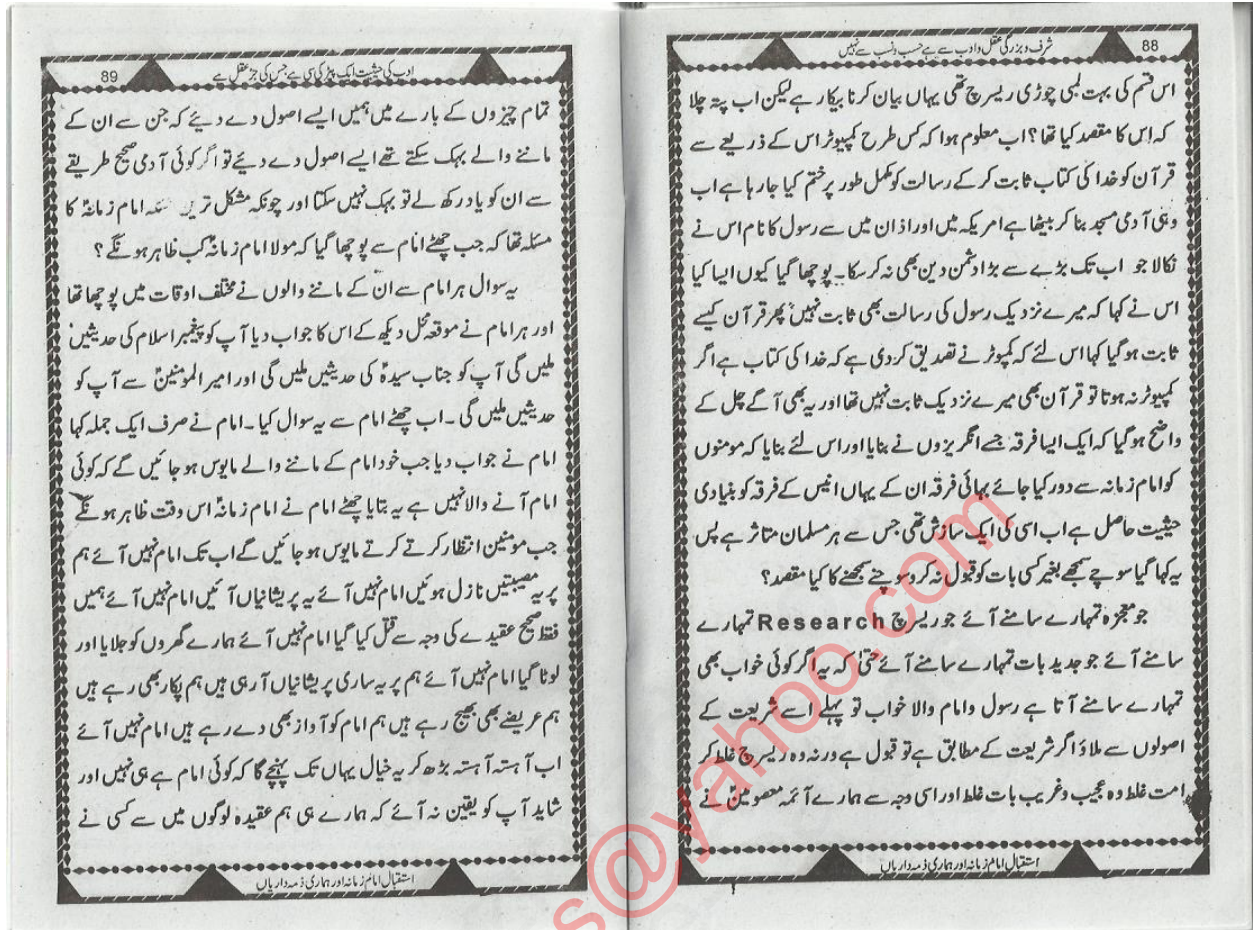 88
شرف و بزرگی عقل و ادب سے ہے حسب و نسب سے نہیں
اس قسم کی بہت لمبی چوڑی ریسرچ تھی یہاں بیان کرنا بیکار ہے لیکن اب پتہ چلا
کہ اس کا مقصد کیا تھا؟ اب معلوم ہوا کہ کس طرح کمپیوٹر اس کے ذریعے سے
قرآن کو خدا کی کتاب ثابت کر کے رسالت کو مکمل طور پر ختم کیا جا رہا ہے اب
وہی آدمی مسجد بنا کر بیٹھا ہے امریکہ میں اور اذان میں سے رسول کا نام اس نے
نکالا جو اب تک بڑے سے بڑا دشمن دین بھی نہ کر سکا۔ پوچھا گیا کیوں ایسا کیا
اس نے کہا کہ میرے نزدیک رسول کی رسالت بھی ثابت نہیں پھر قرآن کیسے
ثابت ہو گیا کہا اس لئے کہ کمپوٹر نے تصدیق کردی ہے کہ خدا کی کتاب ہے اگر
کمپیوٹر نہ ہوتا تو قرآن بھی میرے نزدیک ثابت نہیں تھا اور یہ بھی آگے چل کے
واضح ہو گیا کہ ایک ایسا فرقہ جسے انگریزوں نے بنایا اور اس لئے بنایا کہ مومنوں
کو امام زمانہ سے دور کیا جائے بہائی فرقہ ان کے یہاں انیس کے فرقہ کو بنیادی
حیثیت حاصل ہے اب اسی کی ایک سازش تھی جس سے ہر مسلمان متاثر ہے پس
یہ کہا گیا سوچے سمجھے بغیر کسی بات کو قبول نہ کرو سوچنے سمجھنے کا کیا مقصد؟
جو معجزہ تمہارے سامنے آئے جو ریسرچ Research تمہارے
سامنے آئے جو جدید بات تمہارے سامنے آئے حتیٰ کہ یہ اگر کوئی خواب بھی
تمہارے سامنے آتا ہے رسول و امام والا خواب تو پہلے اسے شریعت کے
اصولوں سے ملاؤ اگر شریعت کے مطابق ہے تو قبول ہے ورنہ وہ ریسرچ غلط کر
امت غلط وہ عجیب و غریب بات غلط اور اسی وجہ سے ہمارے آئمہ معصومینؑ نے
استقبال امام زمانہ اور ہماری ذمہ داریاں
89
ادب کی حیثیت ایک پیڑ کی سی ہے جس کی جڑ عقل ہے
تمام چیزوں کے بارے میں ہمیں ایسے اصول دے دیئے کہ جن سے ان کے
ماننے والے بہک سکتے تھے ایسے اصول دے دیئے تو اگر کوئی آدمی صحیح طریقے
سے ان کو یاد رکھ لے تو بہک نہیں سکتا اور چونکہ مشکل ترین مسئلہ امام زمانہؑ کا
مسئلہ تھا کہ جب چھٹے امام سے پوچھا گیا کہ مولا امام زمانہؑ کب ظاہر ہونگے؟
یہ سوال ہر امام سے ان کے ماننے والوں نے مختلف اوقات میں پوچھا تھا
اور ہر امام نے موقعہ محل دیکھ کے اس کا جواب دیا آپ کو پیغمبر اسلام کی حدیثیں
ملیں گی آپ کو جناب سیدہؑ کی حدیثیں ملیں گی اور امیر المومنینؑ سے آپ کو
حدیثیں ملیں گی۔ اب چھٹے امام سے یہ سوال کیا۔ امام نے صرف ایک جملہ کہا
امام نے جواب دیا جب خود امام کے ماننے والے مایوس ہو جائیں گے کہ کوئی
امام آنے والا نہیں ہے یہ بتایا چھٹے امام نے امام زمانہؑ اس وقت ظاہر ہونگے
جب مومنین انتظار کرتے کرتے مایوس ہو جائیں گے اب تک امام نہیں آئے ہم
پر یہ مصیبتیں نازل ہوئیں امام نہیں آئے یہ پریشانیاں آئیں امام نہیں آئے ہمیں
فقط صحیح عقیدے کی وجہ سے قتل کیا گیا امام نہیں آئے ہمارے گھروں کو جلایا اور
لوٹا گیا امام نہیں آئے ہم پر یہ ساری پریشانیاں آرہی ہیں ہم پکار بھی رہے ہیں
ہم عریضے بھی بھیج رہے ہیں ہم امام کو آواز بھی دے رہے ہیں امام نہیں آئے
اب آہستہ آہستہ بڑھ کر یہ خیال یہاں تک پہنچے گا کہ کوئی امام ہے ہی نہیں اور
شاید آپ کو یقین نہ آئے کہ ہمارے ہی ہم عقیدہ لوگوں میں سے کسی نے
استقبال امام زمانہ اور ہماری ذمہ داریاں
s@yahoo.com